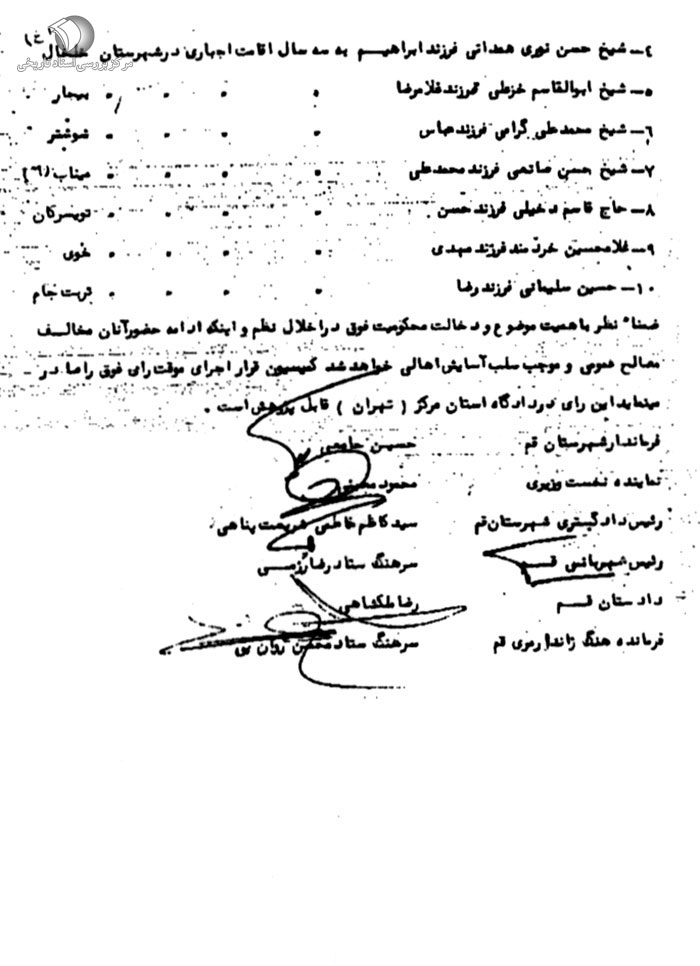 (خ)
مرکز بررسی اسناد تاریخی
۴ــ شیخ حسن نوری همدانی فرزند ابراهیم به سه سال اقامت اجباری در شهرستان خلخال
۵ــ شیخ ابوالقاسم خزعلی فرزند غلامرضا " " " " بیجار
۶ــ شیخ محمد علی گرامی فرزند عباس " " " " شوشتر
۷ــ شیخ حسن صانعی فرزند محمد علی " " " " میناب
۸ــ حاج قاسم دخیلی فرزند حسن " " " " تویسرکان
۹ــ غلامحسین خردمند فرزند مهدی " " " " خوی
۱۰ــ حسین سلیمانی فرزند رضا " " " " تربت جام
ضمنا" نظر باهمیت موضوع و دخالت محکومیت فوق در اخلال نظم و اینکه ادامه حضور آنان مخالف
مصالح عمومی و موجب سلب آسایش اهالی خواهد شد کمیسیون قرار اجرای موقت رای فوق را صادر ــ
مینماید این رای در دادگاه استان مرکز ( تهران ) قابل پژوهش است .
فرماندار شهرستان قم حسین
نماینده نخست وزیری محمود
رئیس دادگستری شهرستان قم سید کاظم فاطمی شریعت پناهی
رئیس شهربانی قم سرهنگ ستاد رضا رزمی
دادستان قم رضا ملکشاهی
فرمانده هنگ ژاندارمری قم سرهنگ ستاد محسن